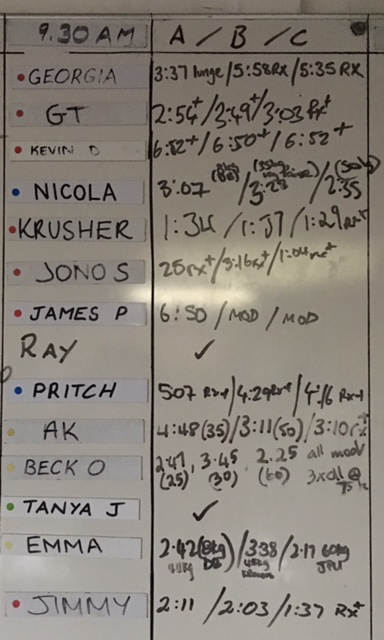 9.30 AM A / B / C
GEORGIA 3:37 lunge / 5:58 RX / 5:35 RX
GT 2:54+ / 3:49+ / 3:03 Rx+
KEVIN D 6:52+ / 6:50+ / 6:52+
NICOLA 3:07 / 3:28 / 2:35 (50kg)
KRUSHER 1:34 / 1:37 / 1:29
JONO S 25 rx+ / 3:16 rx+ / 1:04 rx+
JAMES P 6:50 / MOD / MOD
RAY ✓
PRITCH 507 / 4:29 / 4:16
AK 4:48 (35) / 3:11 (50) / 3:10
BECK O 2:47, 3.45 2.25 all mod
(25) (30) (60) @
TANYA J ✓
EMMA 2.42 (8kg / 3:38 / 2:17 60kg
DB
JIMMY 2:11 / 2:03 / 1:37 Rx+